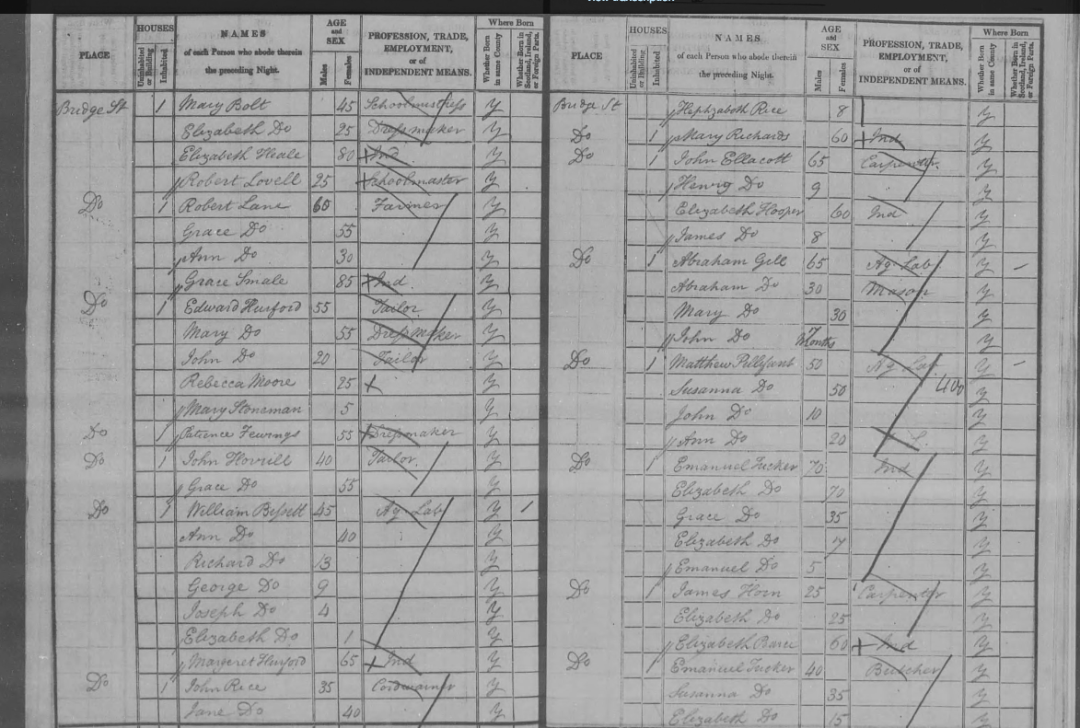 View transcription
PLACE HOUSES Uninhabited or Building Inhabited NAMES of each Person who abode therein the preceding Night. AGE and SEX Males Females PROFESSION, TRADE, EMPLOYMENT, or of INDEPENDENT MEANS. Where Born Whether Born in same County Whether Born in Scotland, Ireland, or Foreign Parts.
Bridge St 1 Mary Bolt 45 Schoolmistress y
Elizabeth Do 25 Dressmaker y
Elizabeth Heale 80 Ind y
Robert Lovell 25 Schoolmaster y
Do 1 Robert Lane 60 Farmer y
Grace Do 55 y
Ann Do 30 y
Grace Smale 85 Ind y
Do 1 Edward Hurford 55 Tailor y
Mary Do 55 Dressmaker y
John Do 20 Tailor y
Rebecca Moore 25 y
Mary Stoneman 5 y
Do 1 Patience Fewings 55 Dressmaker y
Do 1 John 40 Tailor y
Grace Do 55 y
Do 1 William Bissett 45 Ag Lab y
Ann Do 40 y
Richard Do 13 y
George Do 9 y
Joseph Do 4 y
Elizabeth Do 1 y
Margaret Hurford 65 Ind y
Do 1 John Rice 35 Cordwainer y
Jane Do 40 y
PLACE HOUSES Uninhabited or Building Inhabited NAMES of each Person who abode therein the preceding Night. AGE and SEX Males Females PROFESSION, TRADE, EMPLOYMENT, or of INDEPENDENT MEANS. Where Born Whether Born in same County Whether Born in Scotland, Ireland, or Foreign Parts.
Bridge St Hephzabeth Rice 8 y
Do 1 Mary Richards 60 Ind y
Do 1 John Ellacott 65 Carpenter y
Henry Do 9 y
Elizabeth Hooper 60 Ind y
James Do 8 y
Do 1 Abraham Gill 65 Ag Lab y
Abraham Do 30 Mason y
Mary Do 30 y
John Do 7 Months y
Do 1 Matthew 50 Ag Lab y
Susanna Do 50 y
John Do 10 y
Ann Do 20 y
Do 1 Emanuel Tucker 70 Ind y
Elizabeth Do 70 y
Grace Do 35 y
Elizabeth Do 7 y
Emanuel Do 5 y
Do 1 James Horn 25 Carpenter y
Elizabeth Do 25 y
Elizabeth 60 Ind y
Do 1 Emanuel Tucker 40 Butcher y
Susanna Do 35 y
Elizabeth Do 15 y